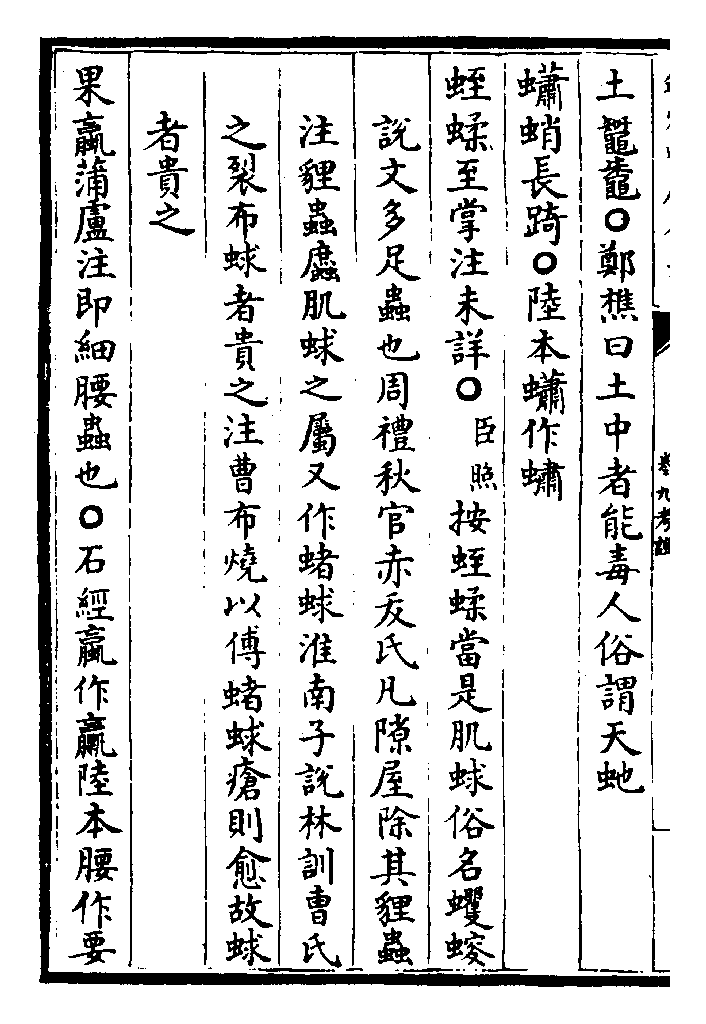 土䵹鼀○鄭樵曰土中者能毒人俗謂天虵
蠨蛸長踦○陸本蠨作蟰
蛭蝚至掌注未詳○臣照按蛭蝚當是肌蛷俗名蠼螋
說文多足蟲也周禮秋官赤犮氏凡隙屋除其貍蟲
注貍蟲䗪肌蛷之屬又作蝫蛷淮南子說林訓曹氏
之裂布蛷者貴之注曹布燒以傅蝫蛷瘡則愈故蛷
者貴之
果蠃蒲盧注即細腰蟲也○石經蠃作臝陸本腰作要
卷九考證